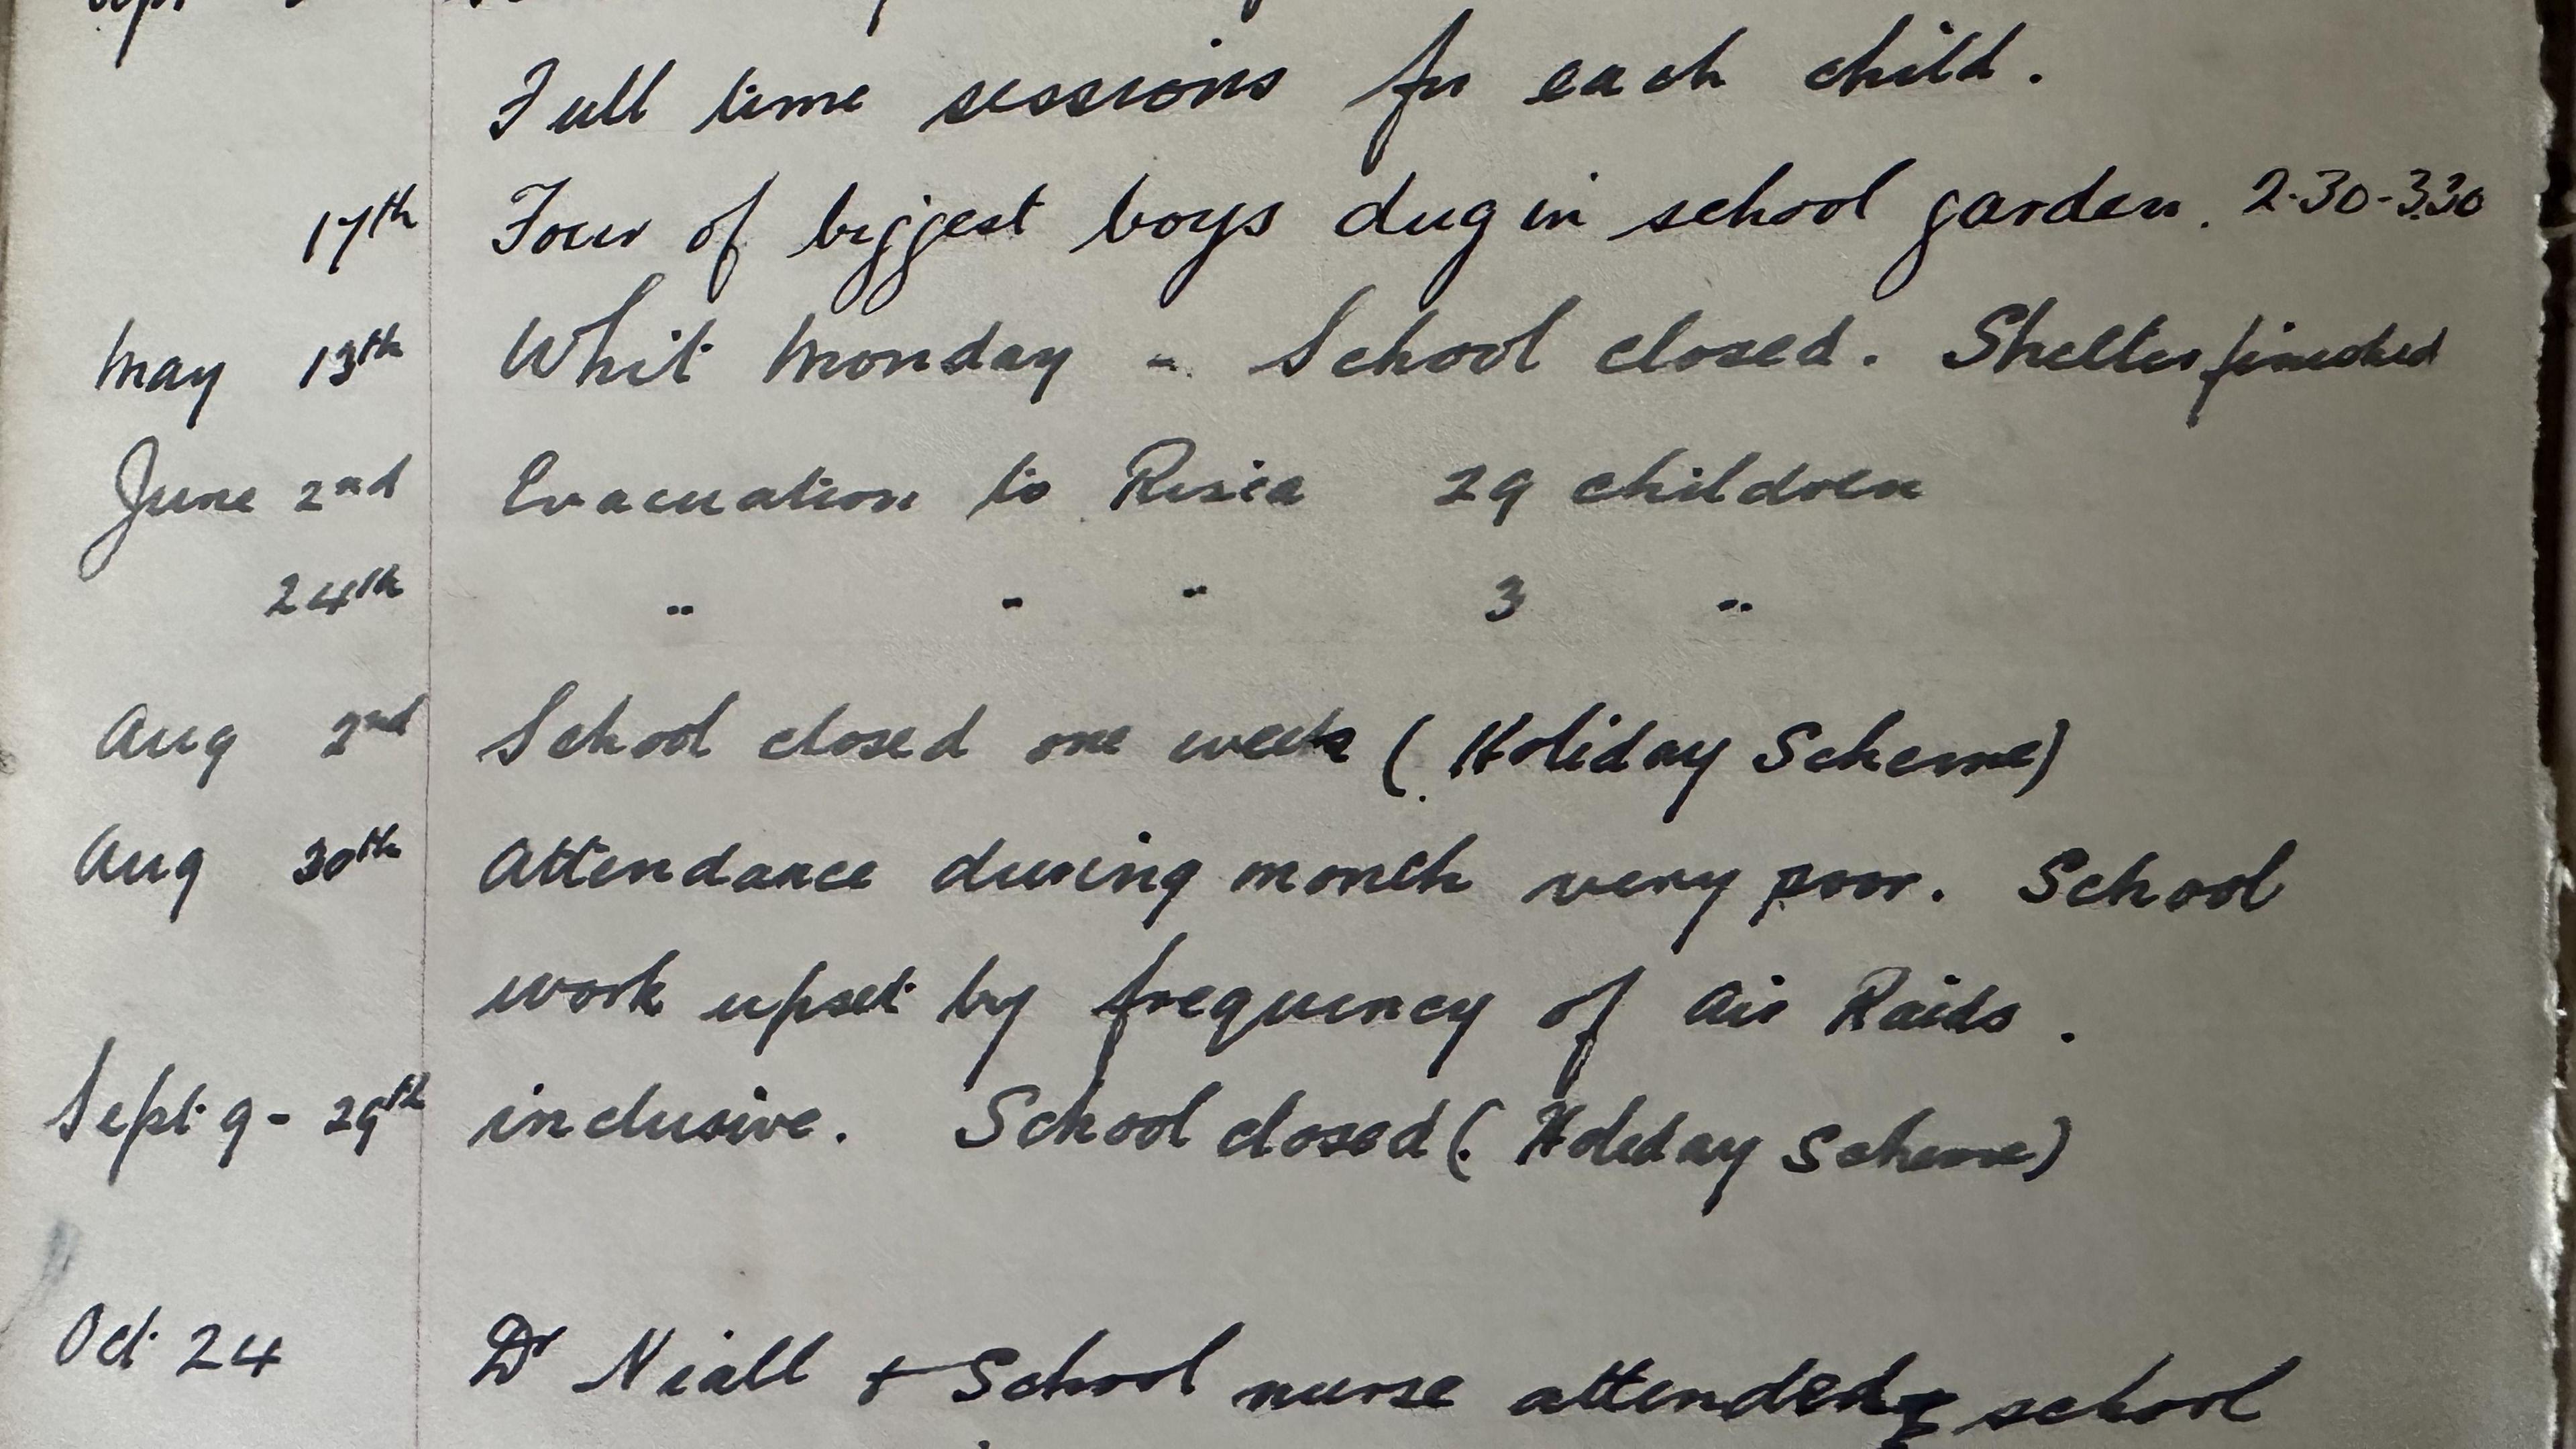 Full time sessions for each child.
17th Four of biggest boys dug in school garden. 2.30-3.30
May 13th Whit Monday - School closed. Shelter finished
June 2nd Evacuation to Risca 29 children
24th " " " 3 "
Aug 2nd School closed one week (Holiday Scheme)
Aug 30th Attendance during month very poor. School
work upset by frequency of Air Raids.
Sept 9-29th inclusive. School closed (Holiday Scheme)
Oct 24 Dr Niall + School nurse attended school